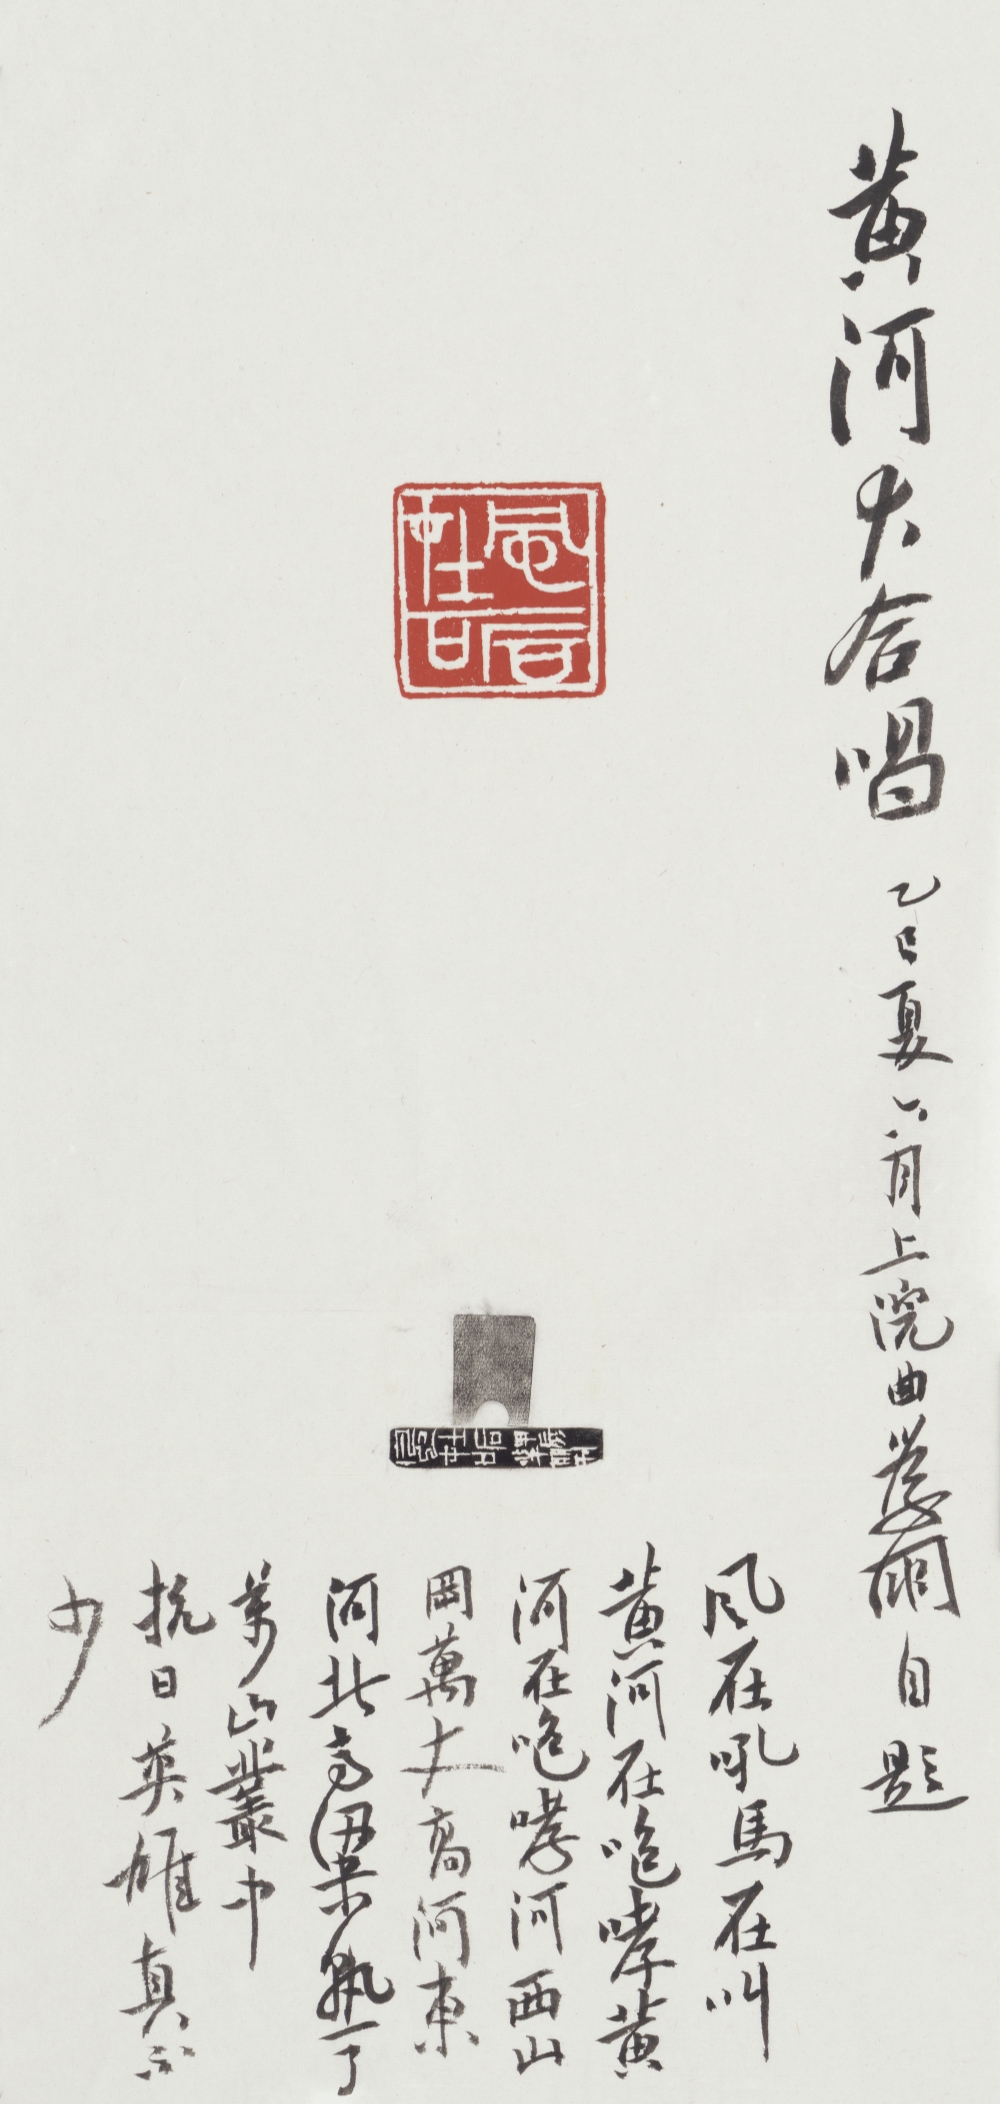 黄河大合唱 乙巳夏六月上浣曲 自題
風在吼馬在叫
黄河在咆哮黄
河在咆哮河西山
岡萬丈高河東
河北高粱熟了
萬山叢中
抗日英雄真不
少